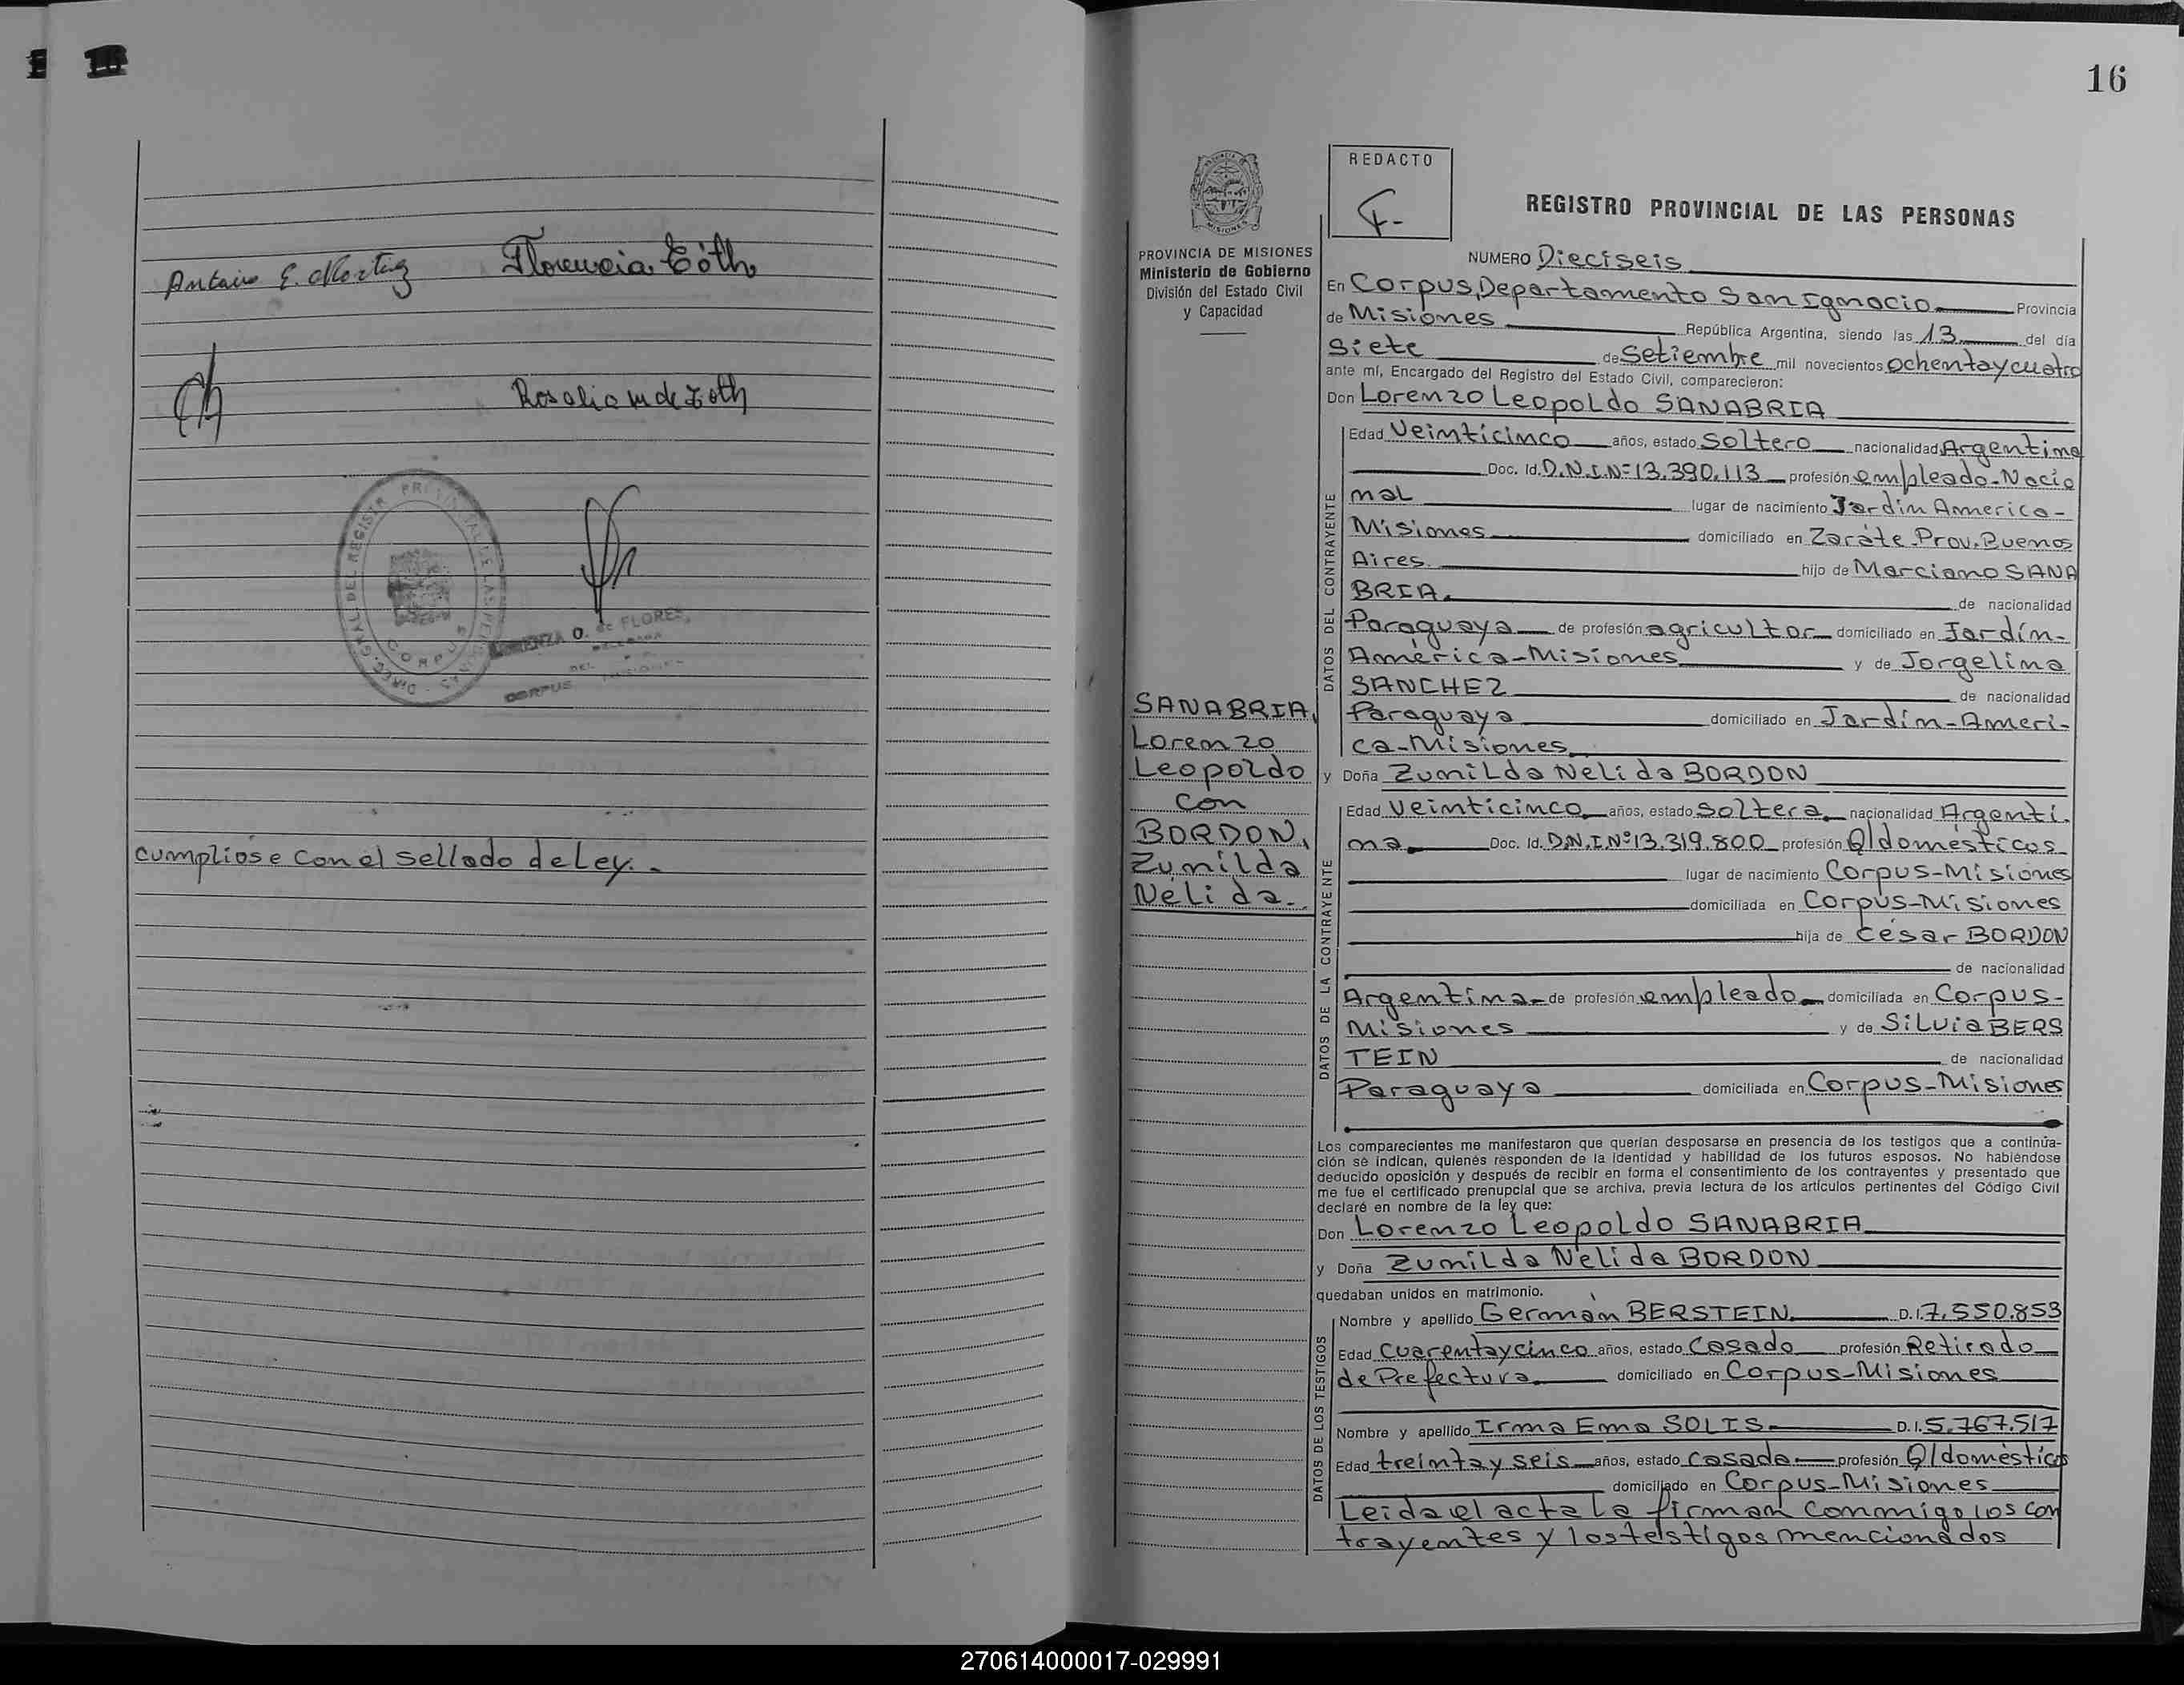 Florencia Tóth
Rosalia M de Toth
CORPUS
O. de FLORES
CORPUS
cumpliose con el sellado de Ley.-
16
REDACTO
PROVINCIA DE MISIONES
Ministerio de Gobierno
División del Estado Civil
y Capacidad
REGISTRO PROVINCIAL DE LAS PERSONAS
NUMERO Dieciseis
En Corpus, Departamento San Ignacio Provincia
de Misiones República Argentina, siendo las 13 del día
siete de setiembre mil novecientos ochentaycuatro
ante mí, Encargado del Registro del Estado Civil, comparecieron:
Don Lorenzo Leopoldo SANABRIA
DATOS DEL CONTRAYENTE
Edad Veinticinco años, estado soltero nacionalidad Argentina
Doc. Id. D.N.I.Nº 13.390.113 profesión empleado-Nacio
nal lugar de nacimiento Jardin America-
Misiones domiciliado en Zaráte Prov. Buenos
Aires. hijo de Marciano SANA
BRIA. de nacionalidad
Paraguaya de profesión agricultor domiciliado en Jardín-
América-Misiones y de Jorgelina
SANCHEZ de nacionalidad
Paraguaya domiciliado en Jardín-Ameri-
ca-Misiones
SANABRIA,
Lorenzo
Leopoldo
con
BORDON,
Zunilda
Nélida.-
y Doña Zunilda Nelida BORDON
DATOS DE LA CONTRAYENTE
Edad Veinticinco años, estado soltera nacionalidad Argenti.
na Doc. Id. D.N.I.Nº 13.319.800 profesión Q/domésticos
lugar de nacimiento Corpus-Misiones
domiciliada en Corpus-Misiones
hija de César BORDON
de nacionalidad
Argentina de profesión empleado domiciliada en Corpus-
Misiones y de Silvia BERS
TEIN de nacionalidad
Paraguaya domiciliada en Corpus-Misiones
Los comparecientes me manifestaron que querían desposarse en presencia de los testigos que a continua-
ción se indican, quienes responden de la identidad y habilidad de los futuros esposos. No habiéndose
deducido oposición y después de recibir en forma el consentimiento de los contrayentes y presentado que
me fue el certificado prenupcial que se archiva, previa lectura de los artículos pertinentes del Código Civil
declaré en nombre de la ley que:
Don Lorenzo Leopoldo SANABRIA
y Doña Zunilda Nélida BORDON
quedaban unidos en matrimonio.
DATOS DE LOS TESTIGOS
Nombre y apellido Germán BERSTEIN D.I. 7.550.853
Edad Cuarentaycinco años, estado Casado profesión Retirado
de Prefectura domiciliado en Corpus-Misiones
Nombre y apellido Irma Ema SOLIS D.I. 5.767.517
Edad treintay seis años, estado casada profesión Q/domésticos
domiciliado en Corpus-Misiones
Leida el acta la firman conmigo los con
trayentes y los testigos mencionados
270614000017-029991